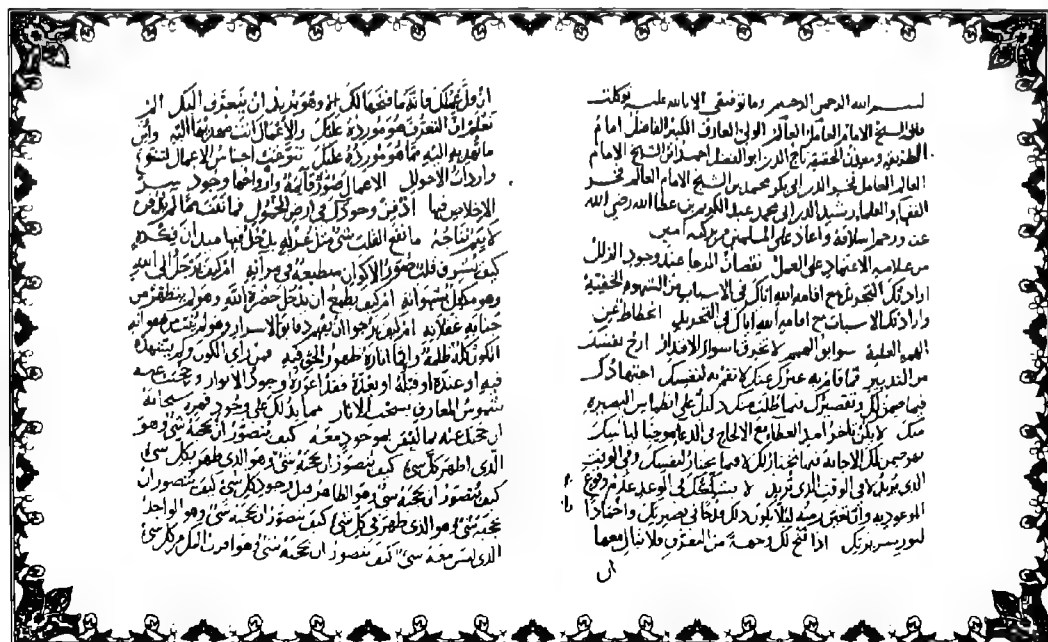 بسم الله الرحمن الرحيم وما توفيقي الا بالله عليه توكلت
قال الشيخ الامام العامل العالم الولي العارف الكبير الفاضل امام
الطريقة ومعدن الحقيقة تاج الدين ابو الفضل احمد ابن الشيخ الامام
العالم العامل فخر الدين ابي بكر محمد بن الشيخ الامام العالم فخر
الفقها والعلما رشيد الدين ابي محمد عبد الكريم بن عطا الله رضي الله
عنه ورحم اسلافه واعاد على المسلمين من بركته امين
من علامه الاعتماد على العمل نقصان الرجا عند وجود الزلل
ارادتك التجريد مع اقامه الله اياك في الاسباب من الشهوه الخفيّة
وارادتك الاسباب مع اقامه الله اياك في التجريد انحطاط عن
الهمه العلية سوابق الهمم لا تخرق اسوار الاقدار ارح نفسك
من التدبير فما قام به غيرك عنك لا تقم به لنفسك اجتهادك
فيما ضمن لك وتقصيرك فيما طلب منك دليل على انطماس البصيره
منك لا يكن تاخر امد العطاء مع الالحاح في الدعا موجبا لياسك
فهو ضمن لك الاجابة فيما يختار لك لا فيما تختار لنفسك وفي الوقت
الذي يريد لا في الوقت الذي تريد لا يشككنك في الوعد عدم وقوع
الموعود به وان تعين زمنه ليلا يكون ذلك قدحا في بصيرتك واخمادا
لنور سريرتك اذا فتح لك وجهة من التعرف فلا تبال معها
ان
ان قل عملك فانه ما فتحها لك الا وهو يريد ان يتعرف اليك الم
تعلم ان التعرف هو مورده عليك والاعمال انت مهديها اليه واين
ما تهديه اليه مما هو مورده عليك تنوعت اجناس الاعمال لتنوع
واردات الاحوال الاعمال صور قايمة وارواحها وجود سر
الاخلاص فيها ادفن وجودك في ارض الخمول فما نبت مما لم يدفن
لا يتم نتاجه ما نفع القلب شي مثل عزله يدخل فيها ميدان فكره
كيف يشرق قلب صور الاكوان منطبعة في مرآته ام كيف يرحل الى الله
وهو مكبل بشهواته ام كيف يطمع ان يدخل حضرة الله وهو لم يتطهر من
جنابه غفلاته ام كيف يرجو ان يفهم دقايق الاسرار وهو لم يتب من هفواته
الكون كله ظلمة وانما اناره ظهور الحق فيه فمن راى الكون ولم يشهده
فيه او عنده او قبله او بعده فقد اعوزه وجود الانوار وحجبت عنه
شموس المعارف بسحب الاثار مما يدلك على وجود قهره سبحانه
ان حجبك عنه بما ليس بموجود معه كيف يتصور ان يحجبه شي وهو
الذي اظهر كل شي كيف يتصور ان يحجبه شي وهو الذي ظهر بكل شي
كيف يتصور ان يحجبه شي وهو الظاهر قبل وجود كل شي كيف يتصور ان
يحجبه شي وهو الذي ظهر في كل شي كيف يتصور ان يحجبه شي وهو الواحد
الذي ليس معه شي كيف يتصور ان يحجبه شي وهو اقرب اليك من كل شي